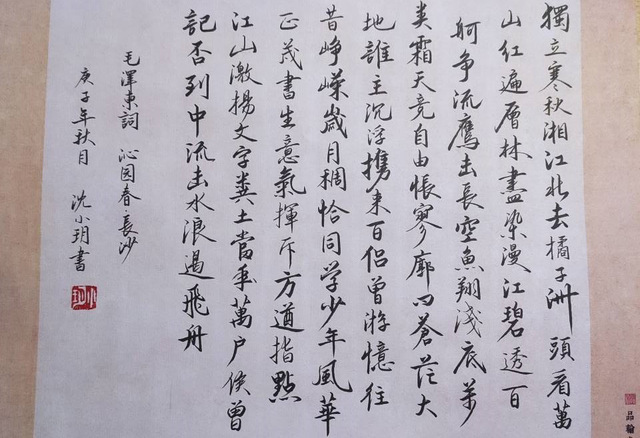 獨立寒秋湘江北去橘子洲頭看萬
山紅遍層林盡染漫江碧透百
舸争流鷹击長空魚翔淺底萬
类霜天竞自由悵寥廓四蒼茫大
地誰主沉浮携来百侣曾游憶往
昔峥嵘歲月稠恰同学少年風華
正茂書生意氣揮斥方遒指點
江山激揚文字粪土當年萬户侯曾
記否到中流击水浪遏飛舟
毛澤東詞 沁园春長沙
庚子年秋月 沈小玥書
品翰